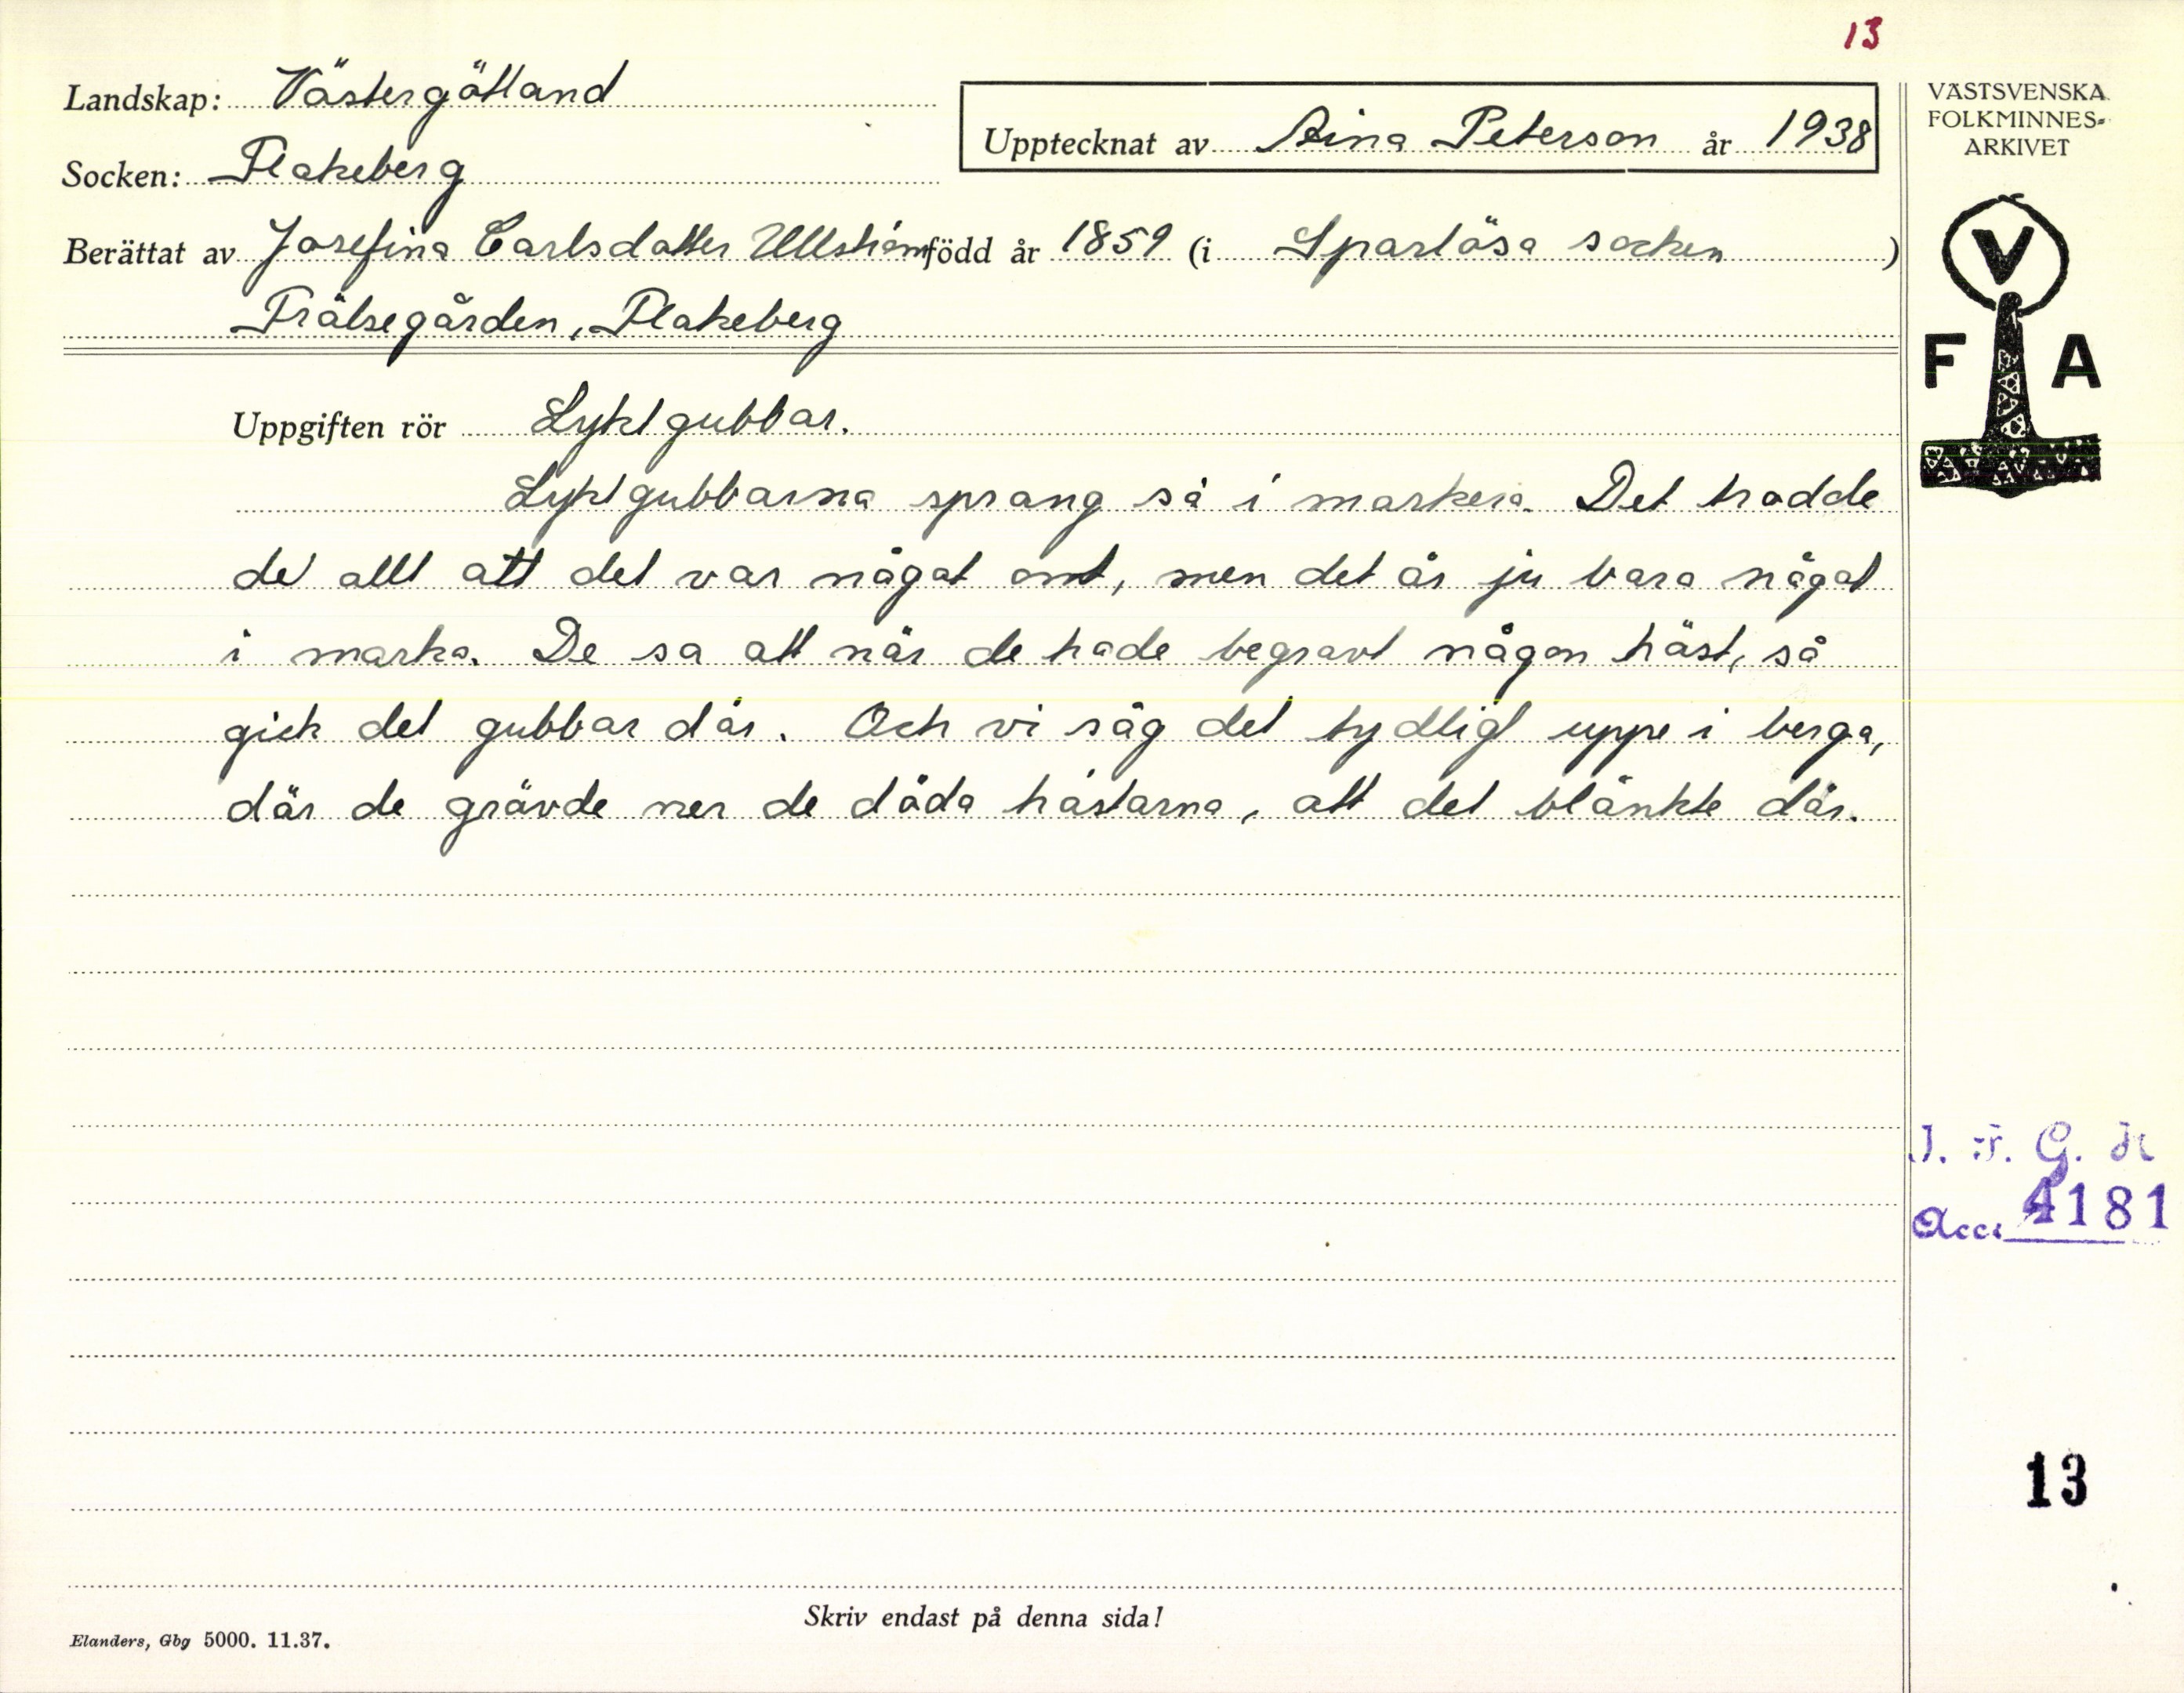 13
Landskap: Västergötland
Upptecknat av Aina Peterson år 1938
VÄSTSVENSKA
FOLKMINNES-
ARKIVET
Socken: Flakeberg
Berättat av Josefina Carlsdotter Ullström född år 1859 (i Sparlösa socken)
Frälsegården, Flakeberg
V
F A
Uppgiften rör Lyktgubbar.
Lyktgubbarna sprang så i markera. Det trodde
de allt att det var något ont, men det är ju bara något
i marka. De sa att när de hade begravt någon häst, så
gick det gubbar där. Och vi såg det tydligt uppe i berga,
där de grävde ner de döda hästarna, att det blänkte där.
I. F. G. H
Acc. 4181
13
Skriv endast på denna sida!
Elanders, Gbg 5000. 11.37.